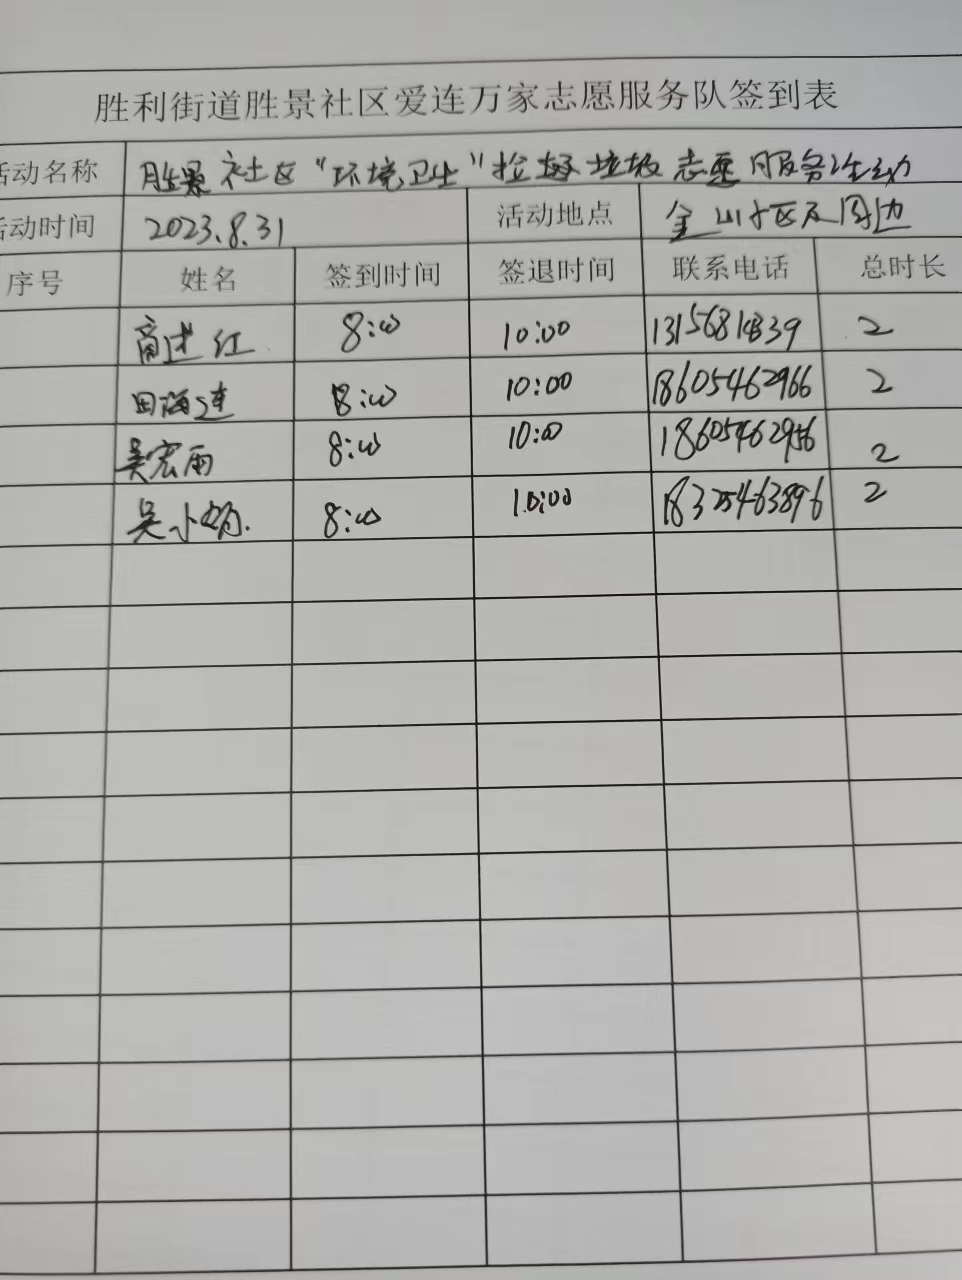 胜利街道胜景社区爱连万家志愿服务队签到表
活动名称 胜景社区“环境卫生”捡拾垃圾志愿服务活动
活动时间 2023.8.31 活动地点 金山小区及周边
序号 姓名 签到时间 签退时间 联系电话 总时长
红 8:00 10:00 2
田海连 8:00 10:00 18605462966 2
吴宏雨 8:00 10:00 18605462956 2
吴小娟. 8:00 10:00 18325463896 2